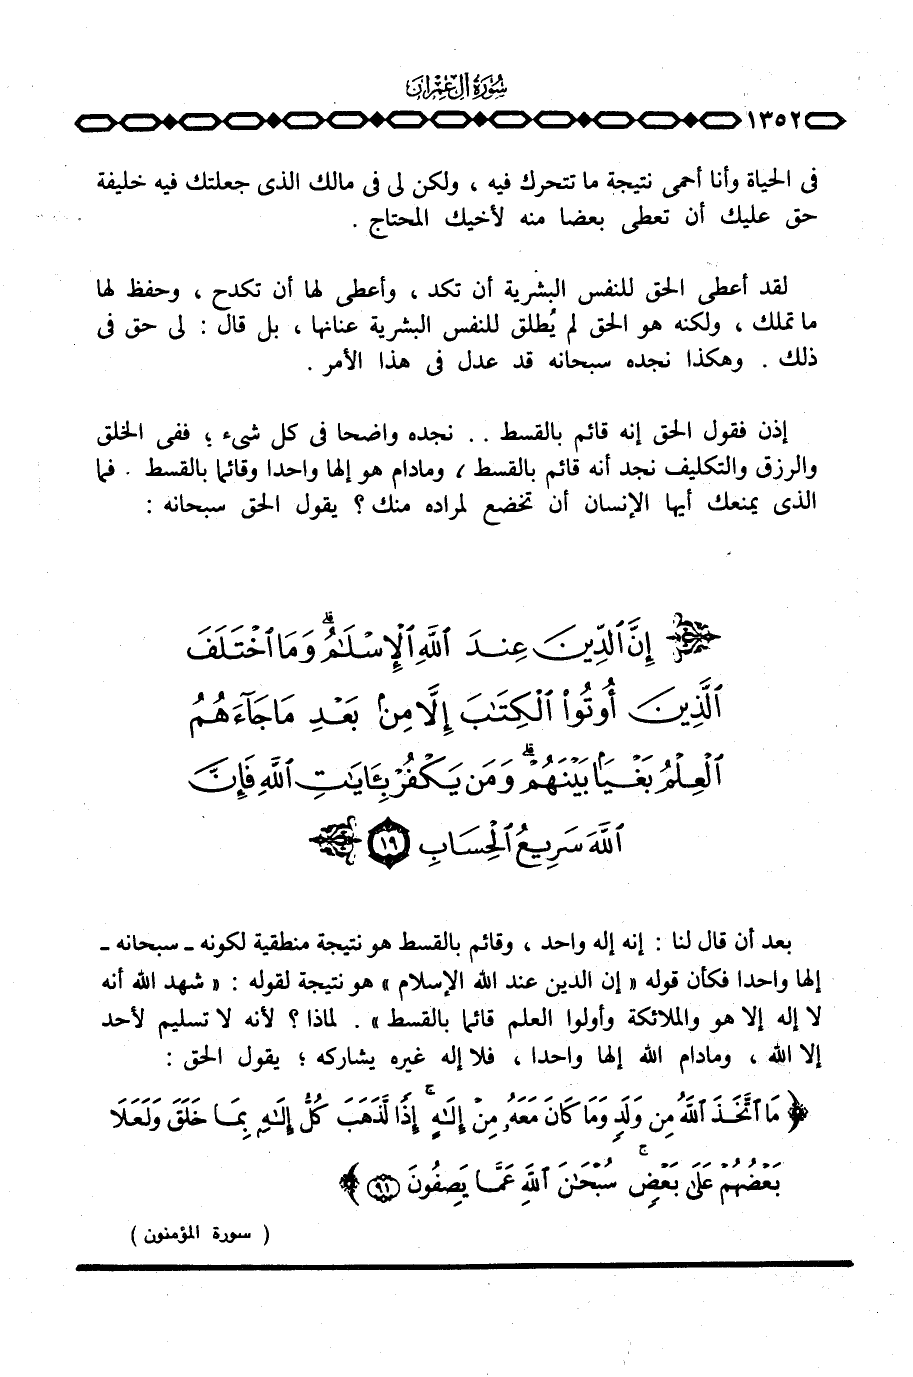 سُورَةُ آلِ عِمْرَانَ
١٣٥٢
فى الحياة وأنا أحمى نتيجة ما تتحرك فيه ، ولكن لى فى مالك الذى جعلتك فيه خليفة
حق عليك أن تعطى بعضا منه لأخيك المحتاج .
لقد أعطى الحق للنفس البشرية أن تكد ، وأعطى لها أن تكدح ، وحفظ لها
ما تملك ، ولكنه هو الحق لم يُطلق للنفس البشرية عنانها ، بل قال : لى حق فى
ذلك . وهكذا نجده سبحانه قد عدل فى هذا الأمر .
إذن فقول الحق إنه قائم بالقسط . . نجده واضحا فى كل شىء ؛ ففى الخلق
والرزق والتكليف نجد أنه قائم بالقسط ، ومادام هو إلها واحدا وقائما بالقسط . فما
الذى يمنعك أيها الإنسان أن تخضع لمراده منك ؟ يقول الحق سبحانه :
إِنَّ ٱلدِّينَ عِندَ ٱللَّهِ ٱلْإِسْلَٰمُ ۗ وَمَا ٱخْتَلَفَ
ٱلَّذِينَ أُوتُوا۟ ٱلْكِتَٰبَ إِلَّا مِنۢ بَعْدِ مَا جَآءَهُمُ
ٱلْعِلْمُ بَغْيًۢا بَيْنَهُمْ ۗ وَمَن يَكْفُرْ بِـَٔايَٰتِ ٱللَّهِ فَإِنَّ
ٱللَّهَ سَرِيعُ ٱلْحِسَابِ ١٩
بعد أن قال لنا : إنه إله واحد ، وقائم بالقسط هو نتيجة منطقية لكونه ـ سبحانه ـ
إلها واحدا فكأن قوله « إن الدين عند الله الإسلام » هو نتيجة لقوله : « شهد الله أنه
لا إله إلا هو والملائكة وأولوا العلم قائما بالقسط » . لماذا ؟ لأنه لا تسليم لأحد
إلا الله ، ومادام الله إلها واحدا ، فلا إله غيره يشاركه ؛ يقول الحق :
﴿ مَا ٱتَّخَذَ ٱللَّهُ مِن وَلَدٍ وَمَا كَانَ مَعَهُۥ مِنْ إِلَٰهٍ ۚ إِذًا لَّذَهَبَ كُلُّ إِلَٰهٍۭ بِمَا خَلَقَ وَلَعَلَا
بَعْضُهُمْ عَلَىٰ بَعْضٍ ۚ سُبْحَٰنَ ٱللَّهِ عَمَّا يَصِفُونَ ٩١ ﴾
( سورة المؤمنون )